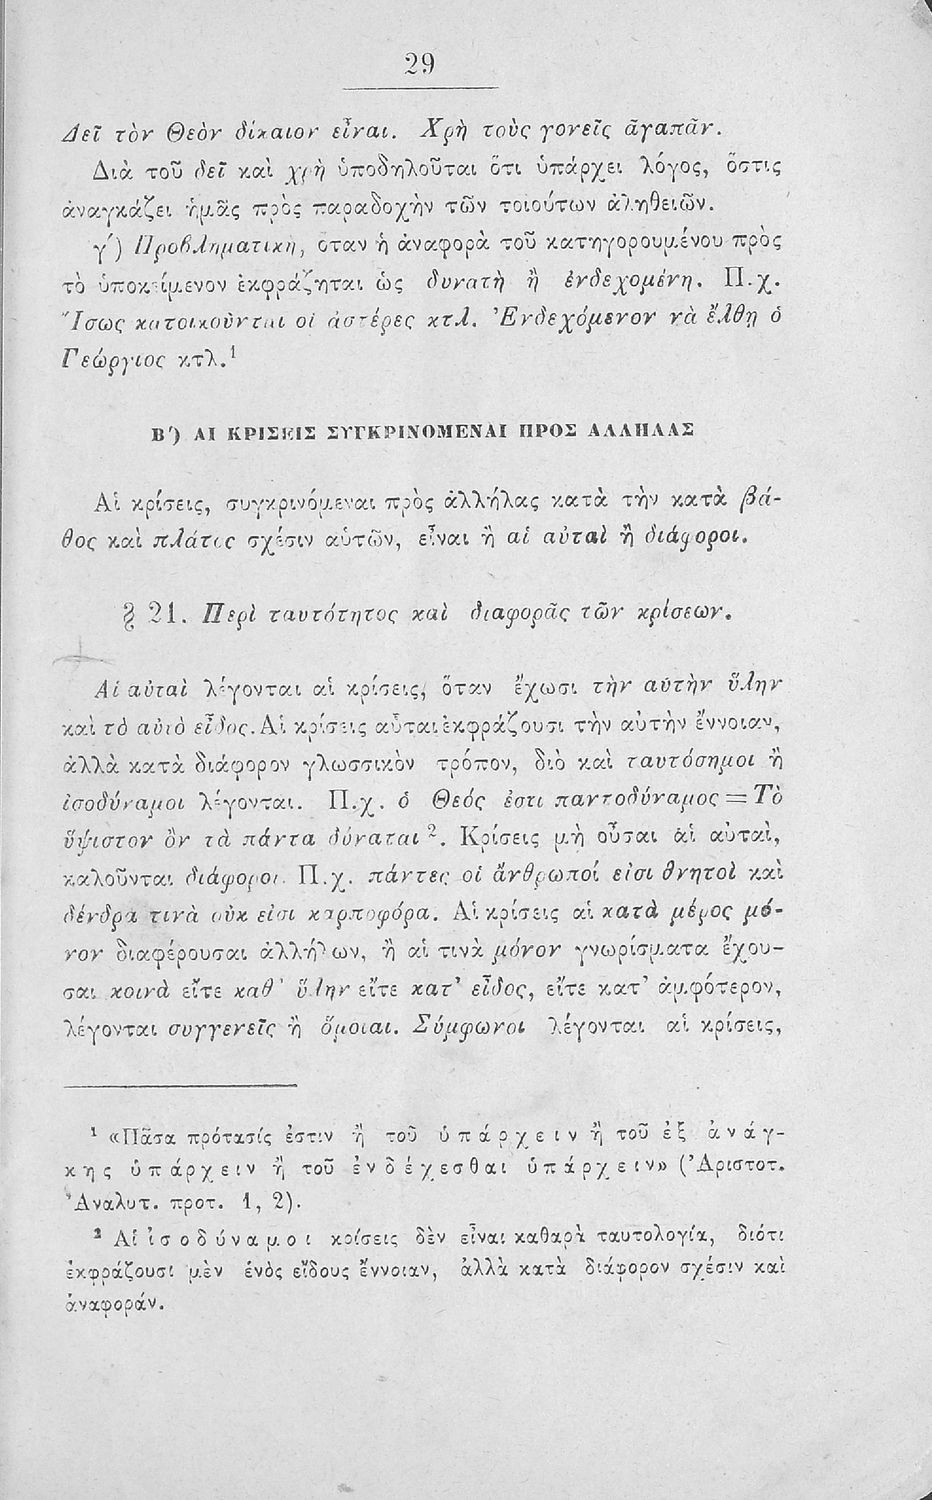 29
Δεῖ τὸν Θεὸν δίκαιον εἶναι. Χρὴ τοὺς γονεῖς ἀγαπᾶν.
Διὰ τοῦ δεῖ καὶ χρὴ ὑποδηλοῦται ὅτι ὑπάρχει λόγος, ὅστις
ἀναγκάζει ἡμᾶς πρὸς παραδοχὴν τῶν τοιούτων ἀληθειῶν.
γ΄) Προβληματικὴ, ὅταν ἡ ἀναφορὰ τοῦ κατηγορουμένου πρὸς
τὸ ὑποκείμενον ἐκφράζηται ὡς δυνατὴ ἢ ἐνδεχομένη. Π.χ.
Ἴσως κατοικοῦνται οἱ ἀστέρες κτλ. Ἐνδεχόμενον νὰ ἔλθῃ ὁ
Γεώργιος κτλ.¹
Β΄) ΑΙ ΚΡΙΣΕΙΣ ΣΥΓΚΡΙΝΟΜΕΝΑΙ ΠΡΟΣ ΑΛΛΗΛΑΣ
Αἱ κρίσεις, συγκρινόμεναι πρὸς ἀλλήλας κατὰ τὴν κατὰ βά-
θος καὶ πλάτος σχέσιν αὐτῶν, εἶναι ἢ αἱ αὐταὶ ἢ διάφοροι.
§ 21. Περὶ ταυτότητος καὶ διαφορᾶς τῶν κρίσεων.
Αἱ αὐταὶ λέγονται αἱ κρίσεις, ὅταν ἔχωσι τὴν αὐτὴν ὕλην
καὶ τὸ αὐτὸ εἶδος. Αἱ κρίσεις αὗται ἐκφράζουσι τὴν αὐτὴν ἔννοιαν,
ἀλλὰ κατὰ διάφορον γλωσσικὸν τρόπον, διὸ καὶ ταυτόσημοι ἢ
ἰσοδύναμοι λέγονται. Π.χ. ὁ Θεός ἐστι παντοδύναμος = Τὸ
ὕψιστον ὂν τὰ πάντα δύναται². Κρίσεις μὴ οὖσαι αἱ αὐταὶ,
καλοῦνται διάφοροι. Π.χ. πάντες οἱ ἄνθρωποί εἰσι θνητοὶ καὶ
δένδρα τινὰ οὐκ εἰσι καρποφόρα. Αἱ κρίσεις αἱ κατὰ μέρος μό-
νον διαφέρουσαι ἀλλήλων, ἢ αἱ τινὰ μόνον γνωρίσματα ἔχου-
σαι κοινὰ εἴτε καθ᾽ ὕλην εἴτε κατ᾽ εἶδος, εἴτε κατ᾽ ἀμφότερον,
λέγονται συγγενεῖς ἢ ὅμοιαι. Σύμφωνοι λέγονται αἱ κρίσεις,
¹ «Πᾶσα πρότασίς ἐστιν ἢ τοῦ ὑπάρχειν ἢ τοῦ ἐξ ἀνάγ-
κης ὑπάρχειν ἢ τοῦ ἐνδέχεσθαι ὑπάρχειν» (Ἀριστοτ.
Ἀναλυτ. προτ. 1, 2).
² Αἱ ἰσοδύναμοι κρίσεις δὲν εἶναι καθαρὰ ταυτολογία, διότι
ἐκφράζουσι μὲν ἑνὸς εἴδους ἔννοιαν, ἀλλὰ κατὰ διάφορον σχέσιν καὶ
ἀναφοράν.